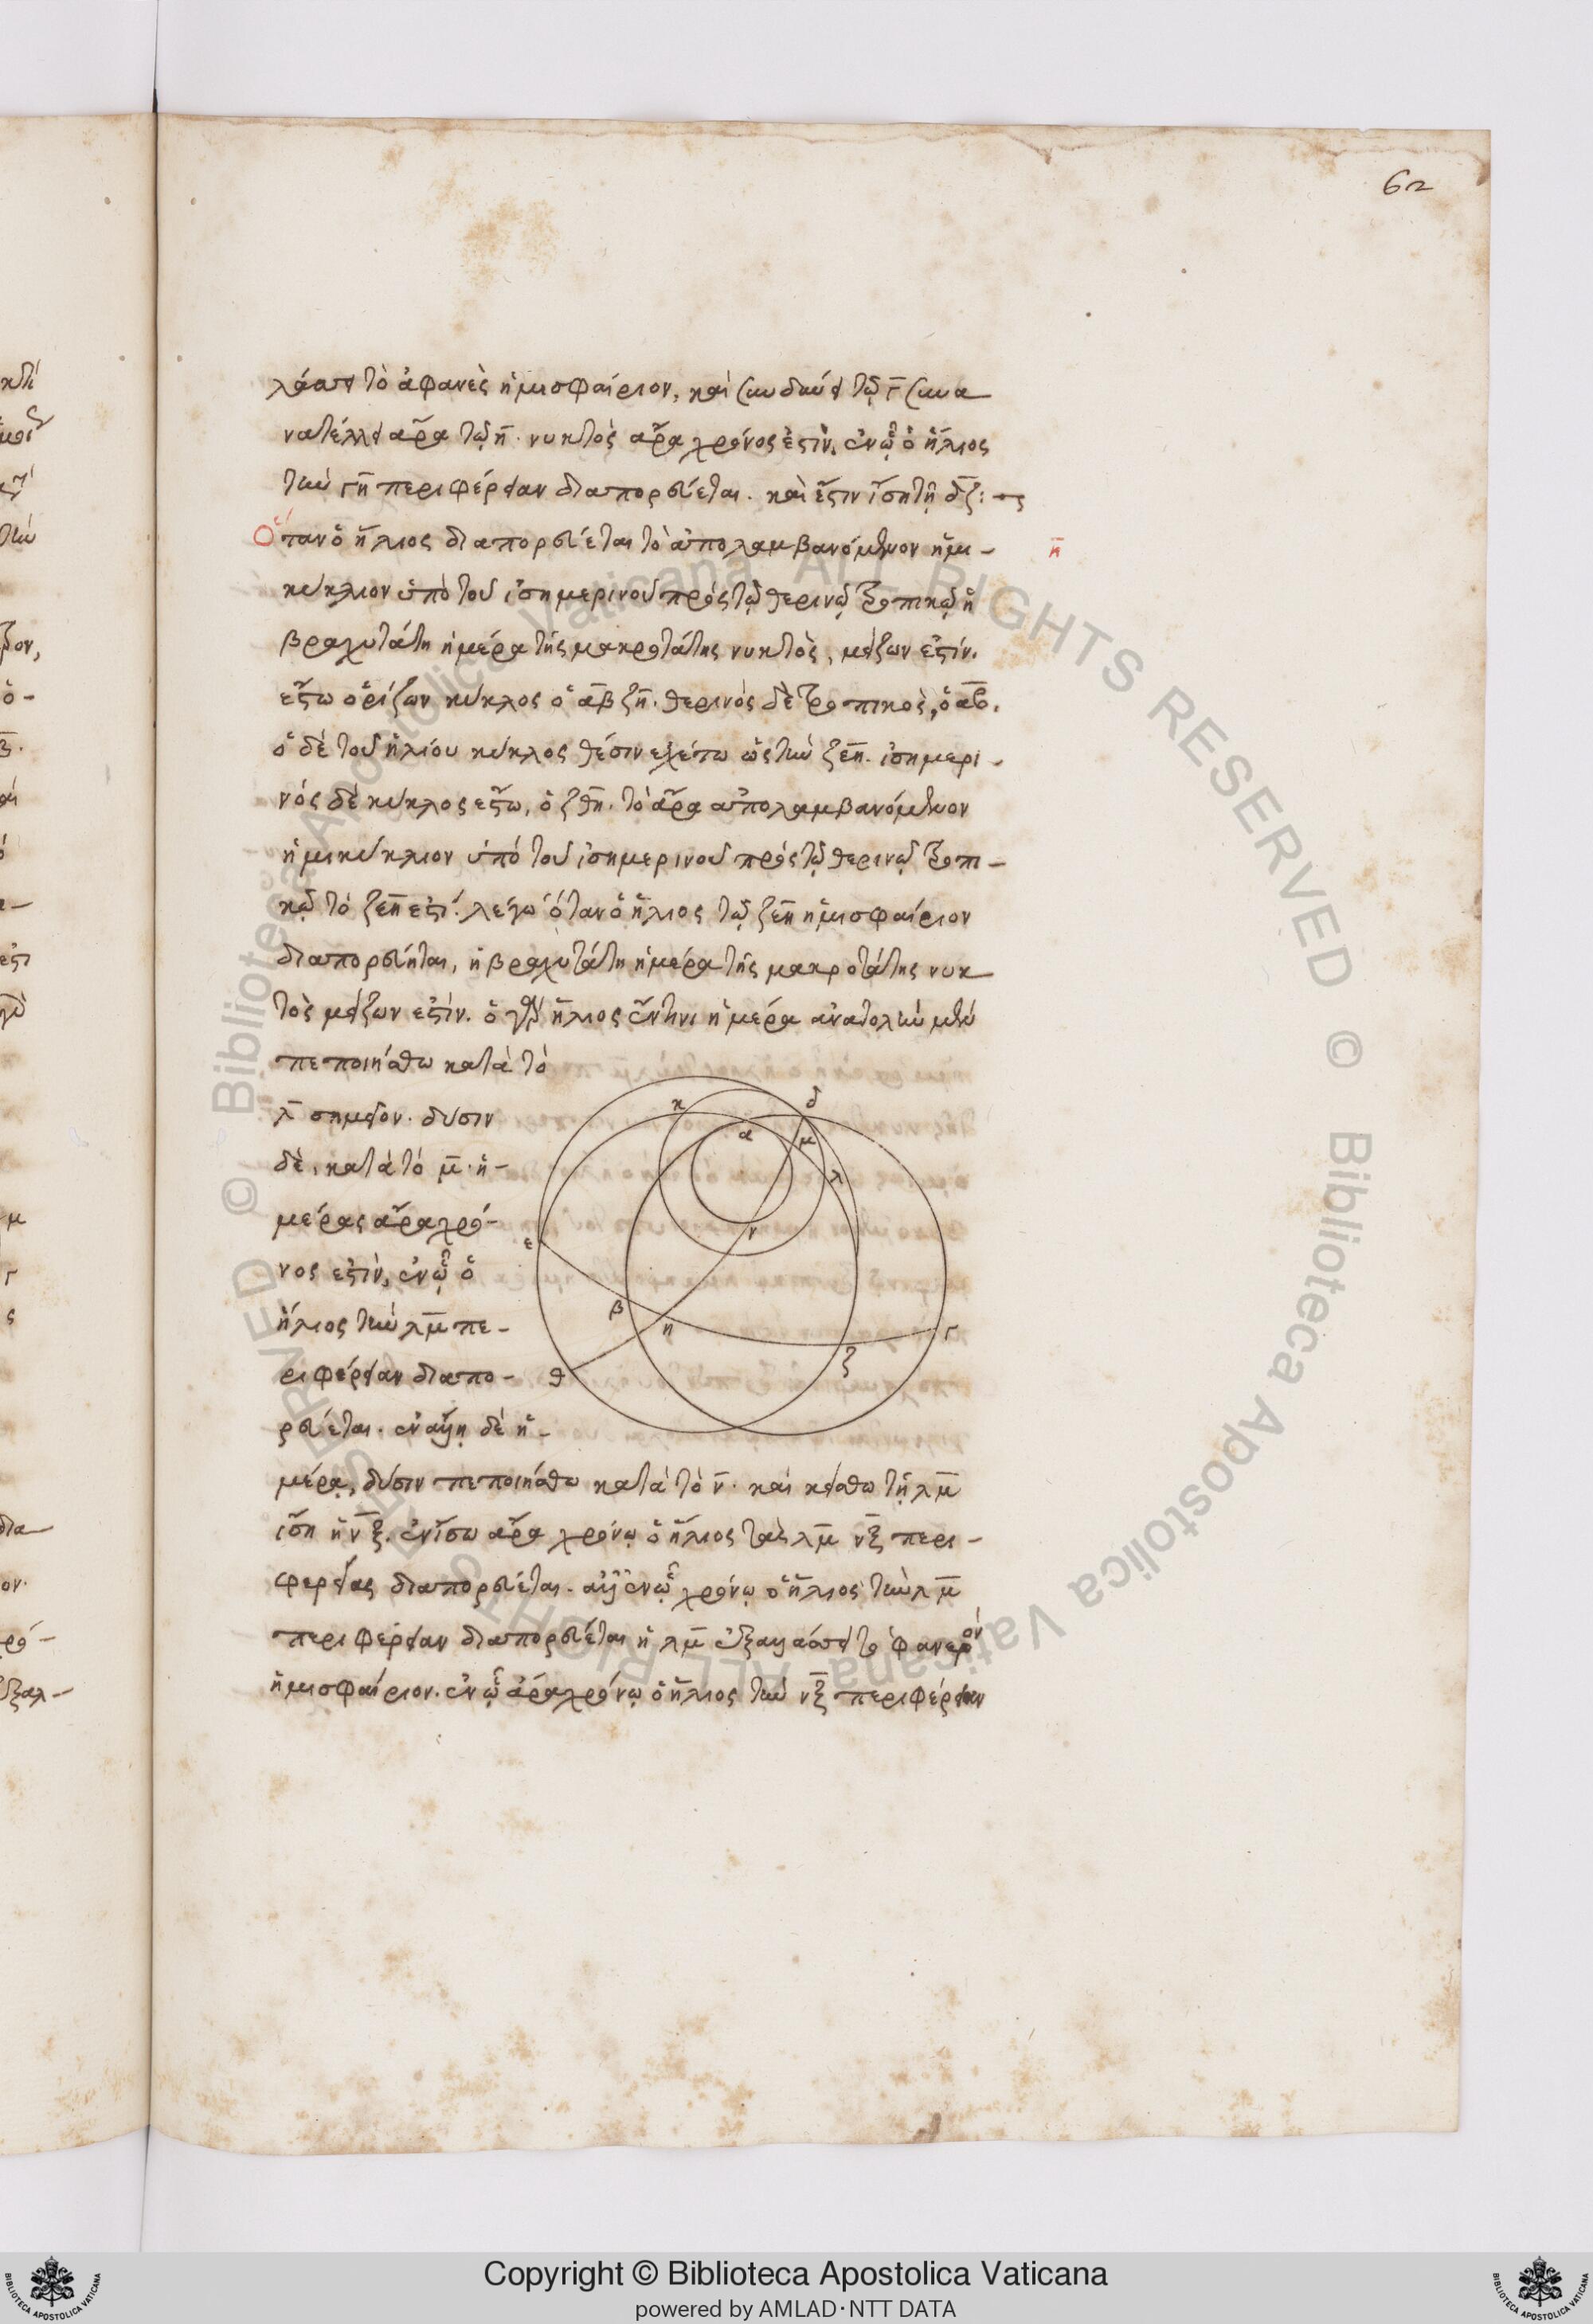 62
λάσσει τὸ ἀφανὲς ἡμισφαίριον, καὶ συνδύνει τῷ γ̄ συνα
νατέλλει ἄρα τῷ η̄. νυκτὸς ἄρα χρόνος ἐστὶν, ἐν ᾧ ὁ ἥλιος
τὴν γη̄ περιφέρειαν διαπορεύεται. καὶ ἔστιν ἴση τῇ δζ̄:
Ὅταν ὁ ἥλιος διαπορεύεται τὸ ἀπολαμβανόμενον ἡμι-
η̄
κύκλιον ὑπὸ τοῦ ἰσημερινοῦ πρὸς τῷ θερινῷ τροπικῷ ἡ
βραχυτάτη ἡμέρα τῆς μακροτάτης νυκτὸς, μείζων ἐστίν.
ἔστω ὁρίζων κύκλος ὁ αβ̄ ζη̄. θερινὸς δὲ τροπικὸς, ὁ αβ̄.
ὁ δὲ τοῦ ἡλίου κύκλος θέσιν ἐχέτω ὡς τὴν ζεη̄. ἰσημερι-
νός δὲ κύκλος ἔστω, ὁ ζθη̄. τὸ ἄρα ἀπολαμβανόμενον
ἡμικύκλιον ὑπὸ τοῦ ἰσημερινοῦ πρὸς τῷ θερινῷ τροπι-
κῷ τὸ ζεη̄ ἐστί. λέγω ὅταν ὁ ἥλιος τῷ ζεη̄ ἡμισφαίριον
διαπορεύηται, ἡ βραχυτάτη ἡμέρα τῆς μακροτάτης νυκ
τὸς μείζων ἐστίν. ὁ γὰρ ἥλιος ἔν τινι ἡμέρα ἀνατολὴν μὲν
πεποιήσθω κατὰ τὸ
λ̄ σημεῖον. δύσιν
δὲ, κατὰ τὸ μ̄. ἡ-
μέρας ἄρα χρό-
νος ἐστὶν, ἐν ᾧ ὁ
ἥλιος τὴν λμ̄ πε-
ριφέρειαν διαπο-
ρεύεται. ἐν ἄλλῃ δὲ ἡ-
μέρᾳ, δύσιν πεποιήσθω κατὰ τὸ ν̄. καὶ κείσθω τῇ λμ̄
ἴση ἡ νξ̄. ἐν ἴσω ἄρα χρόνῳ ὁ ἥλιος τὰς λμ̄ νξ̄ περι-
φερείας διαπορεύεται. ἀλλ' ἐν ᾧ χρόνῳ ὁ ἥλιος τὴν λμ̄
περιφέρειαν διαπορεύεται ἡ λμ̄ ἐξαλλάσσει τὸ φανερὸν
ἡμισφαίριον. ἐν ᾧ ἄρα χρόνῳ ὁ ἥλιος τὴν νξ̄ περιφέρειαν
κ δ
α μ
λ
ε ν
β η
ζ γ
θ
Copyright © Biblioteca Apostolica Vaticana
powered by AMLAD·NTT DATA